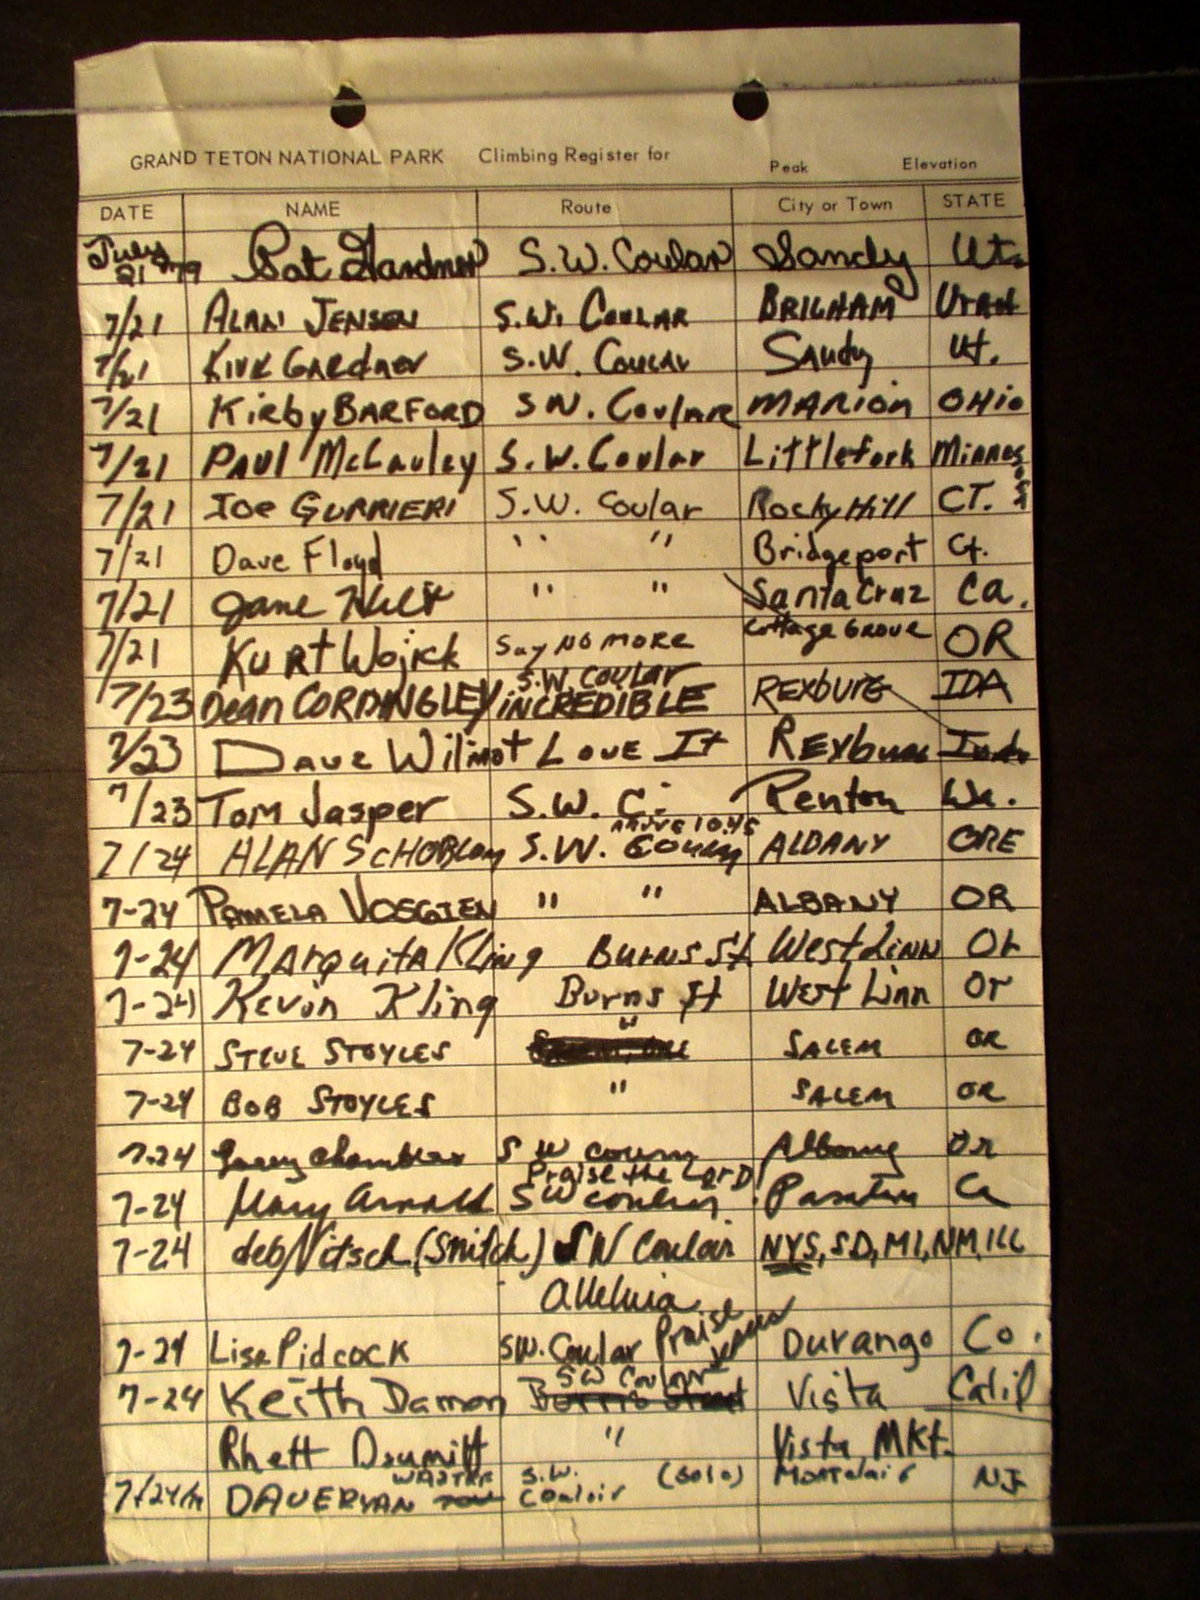 GRAND TETON NATIONAL PARK Climbing Register for Peak Elevation
DATE NAME Route City or Town STATE
July 21 79 Pat Gardner S.W. Coular Sandy Ut.
7/21 ALAN JENSEN S.W. COULAR BRIGHAM UTAH
7/21 Kirk Gardner S.W. Coular Sandy Ut.
7/21 Kirby BARFORD SW. Coular MARION OHio
7/21 PAUL McCauley S.W. Coular Littlefork Minnes
7/21 Joe GURRIERI S.W. Coular Rocky Hill CT.
7/21 Dave Floyd " " Bridgeport Ct.
7/21 Jane " " Santa Cruz Ca.
7/21 KURT Wojick Say NO MORE Cottage Grove OR
S.W. COULAR
7/23 Dean CORDINGLEY INCREDIBLE REXBURG IDA
7/23 Dave Wilmot LOVE It Rexburg
7/23 Tom Jasper S.W. C. Renton Wa.
10:45
7/24 ALAN S.W. ALBANY ORE
7-24 PAMELA VOSGIEN " " ALBANY OR
7-24 Marquita Kling Burns St. West Linn Or
7-24 Kevin Kling Burns St West Linn Or
7-24 STEVE STOYLES " SALEM OR
7-24 BOB STOYLES " SALEM OR
7-24 Chambers S W Albany Or
Praise the Lord!
7-24 Mary Arnold SW Ca
7-24 deb Nitsch (Snitch) SW Couloir NYS, SD, MI, NM, ILL
Alleluia
7-24 Lisa Pidcock SW. Coular Praise Jesus Durango Co.
SW Couloir
7-24 Keith Damon Vista Calif
Rhett " Vista Mkt.
7/24 DAVE RYAN S.W. Couloir (Solo) NJ